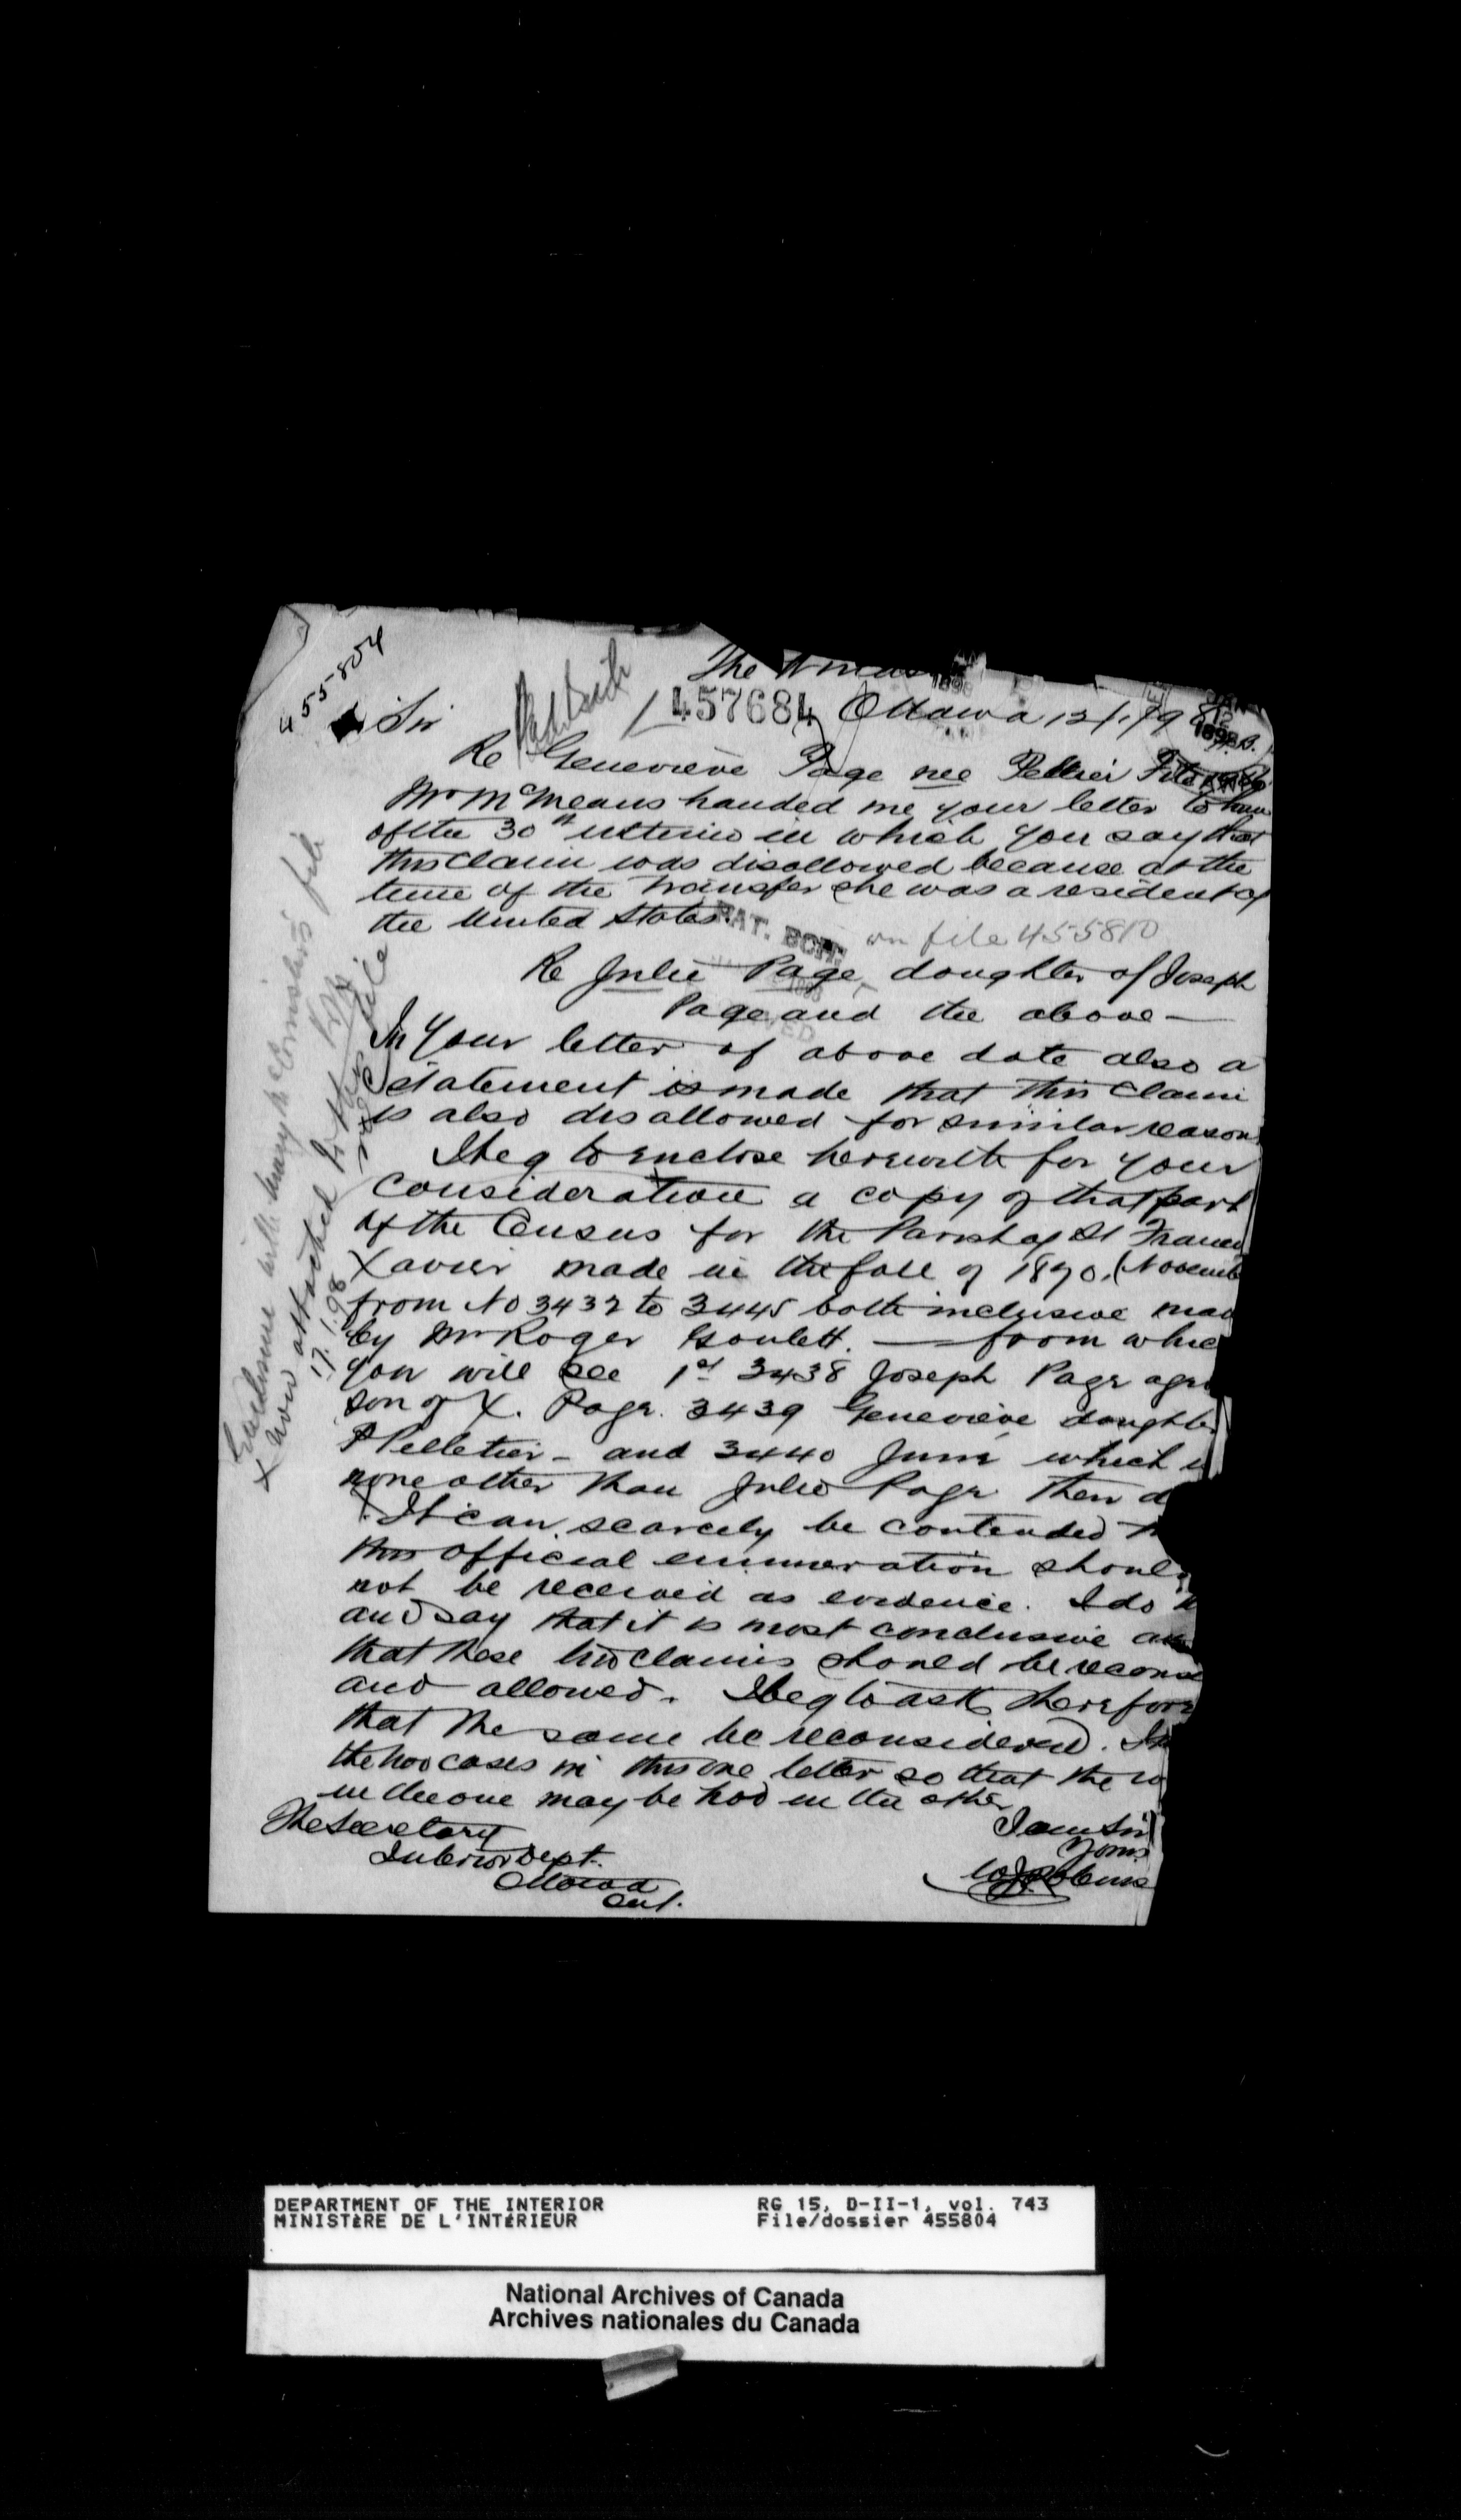 455804
The
457684 Ottawa 12/1/98
Sir
Re Genevieve Page nee Pelletier File
Mr McMeans handed me your letter to him
of the 30th ultimo in which you say that
this claim was disallowed because at the
time of the transfer she was a resident of
the United States.
on file 455810
Re Julie Page, daughter of Joseph
Page and the above —
In your letter of above date also a
statement is made that this claim
is also disallowed for similar reason
I beg to enclose herewith for your
consideration a copy of that part
of the Census for the Parish of St Francis
Xavier made in the fall of 1870, (Novemb
from No 3432 to 3445 both inclusive mad
by Mr Roger Goulett. — from whic
you will see 1st 3438 Joseph Page age
son of X. Page. 3439 Genevieve daughte
P Pelletier - and 3440 June which is
none other than Julie Page then a
It can scarcely be contended th
this official enumeration should
not be received as evidence. I do
and say that it is most conclusive and
that these two claims should be recons
and allowed. I beg to ask therefore
that the same be reconsidered. I
the two cases in this one letter so that the
in the one may be had in the other
I am Sir
Yours
The Secretary
Interior Dept.
Ottawa
Ont.
Enclosure with
x now attached to this file
17.1.98
DEPARTMENT OF THE INTERIOR RG 15, D-II-1, vol. 743
MINISTÈRE DE L'INTÉRIEUR File/dossier 455804
National Archives of Canada
Archives nationales du Canada